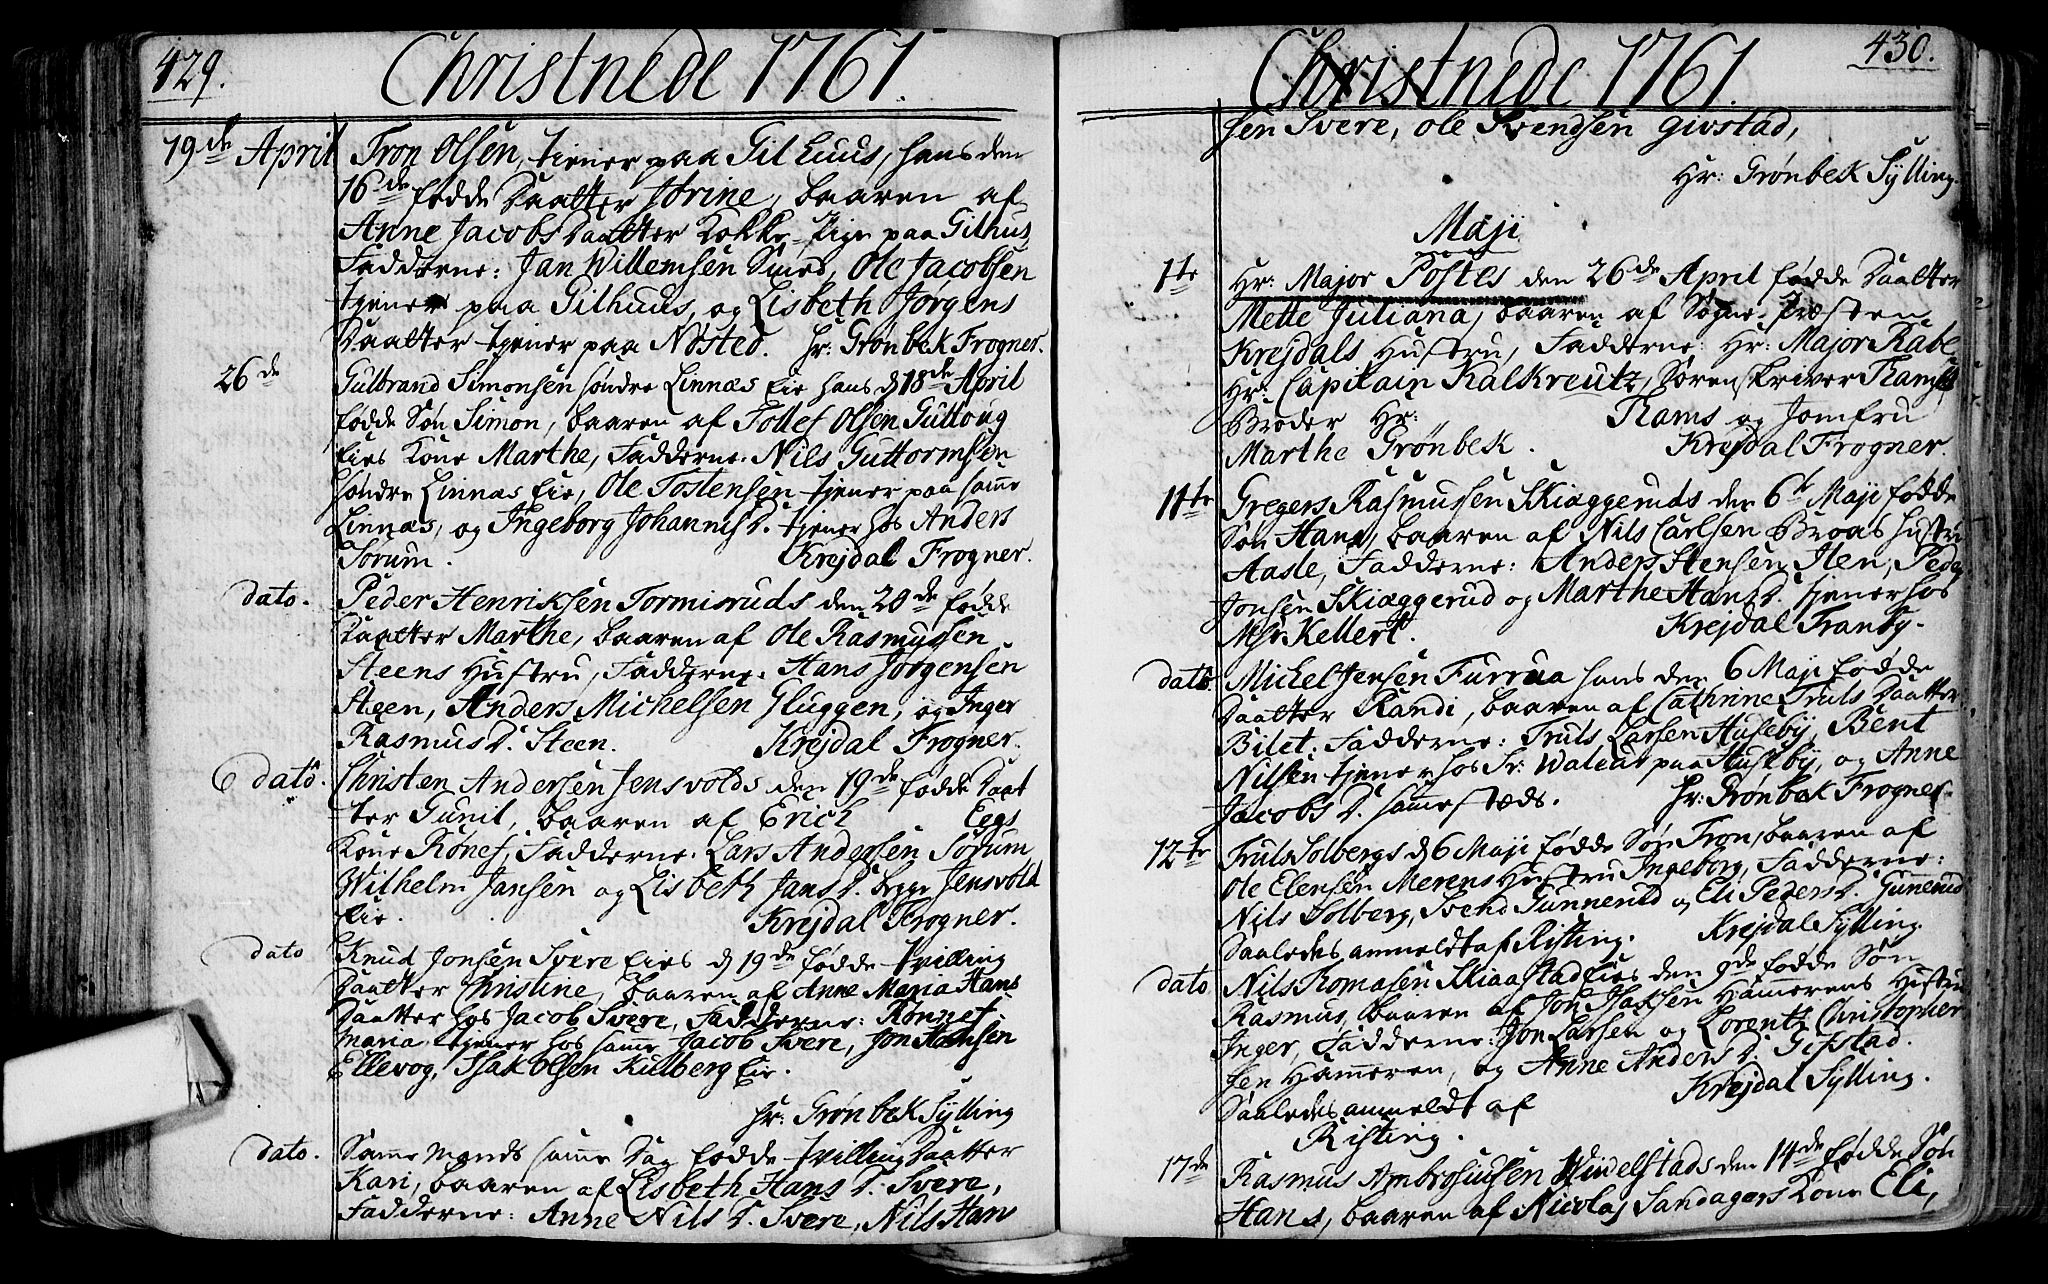 429.
Christnede 1761.
19de April Tron Olsen, tiener paa Gilhuus, hans den
16de fødde Daatter Jórine, baaren af
Anne Jacobs Daatter Kokke-Pige paa Gilhus,
Fadderne: Jan Willemsen Smed, Ole Jacobsen
tjener paa Gilhuus, og Lisbeth Jørgens
Daatter tjener paa Nøsted. Hr: Grønbek Frogner.
26de Gulbrand Simonsen søndre Linnæs Eie hans d 18de April
fødde Søn Simon, baaren af Tollef Olsen Guttoug
Eies Kone Marthe, Fadderne: Nils Guttormsen
søndre Linnæs Eie, Ole Tostensen tjener paa samme
Linnæs, og Ingeborg Johannis D. tjener hos Anders
Sørum. Krejdal Frogner.
dato. Peder Henriksen Tormisruds den 20de fødde
Daatter Marthe, baaren af Ole Rasmussen
Steens Hustru, Fadderne: Hans Jørgensen
Steen, Anders Michelsen Gluggen, og Inger
Rasmus D. Steen. Krejdal Frogner.
dato. Christen Andersen Jensvolds den 19de fødde Daat
ter Gunil, baaren af Erich Eegs
Kone Rønef, Fadderne: Lars Andersen Sørum
Wilhelm Jansen og Lisbeth Jans D. begge Jensvold
Eie. Krejdal Frogner.
dato Knud Jonsen Svere Eies d 19de fødde tvilling
Daatter Christine, baaren af Anne Maria Hans
Daatter hos Jacob Svere, Fadderne: Rønnef
Maria tjener hos samme Jacob Svere, Jon Hansen
Ellevog, Isak Olsen Kulberg Eie.
Hr: Grønbek Sylling
dato. Samme Mands samme Dag fødde tvilling Daatter
Kari, baaren af Lisbeth Hans D. Svere,
Fadderne: Anne Nils D. Svere, Nils Han
430.
Christnede 1761.
sen Svere, Ole Svendsen Givstad,
Hr: Grønbek Sylling.
Maji
1te Hr: Major Postes den 26de April fødde Daatter
Mette Juliana, baaren af Sogne-Præsten
Krejdals Hustru, Fadderne: Hr: Major Rabe
Hr: Capitain Kalkreutz, Sorenskriver
Broder Hr: Thams og Jomfru
Marthe Grønbek. Krejdal Frogner.
11te Gregers Rasmussen Skiæggeruds den 6te Maji fødde
Søn Hans, baaren af Nils Carlsen Broas Hustru
Aasle, Fadderne: Anders Stensen Ilen, Peder
Jonsen Skiæggerud og Marthe Hans D. tjener hos
Msr: Kellert. Krejdal Tranby.
dato Michel Jensen Furrua hans den 6 Maji fødde
Daatter Randi, baaren af Cathrine Truls Daatter
Bilet. Fadderne: Truls Larsen Huseby, Bent
Nilsen tjener hos Fr: Waleur paa Huseby, og Anne
Jacobs D. sammestæds. Hr: Grønbek Frogner.
12te Truls Solbergs d 6 Maji fødde Søn Tron, baaren af
Ole Elensen Merens Hustru Ingeborg, Fadderne:
Nils Solberg, Svend Gunnerud og Eli Peders D. Gunerud
Saaledes anmeldt af Risting. Krejdal Sylling.
dato Nils Romasen Skiaastad Eies den 9de fødde Søn
Rasmus, baaren af Jon Isaksen Hammerens Hustru
Inger, Fadderne: Jon Larsen og Lorentz Christopher
sen Hammeren, og Anne Anders D. Gifstad.
Saaledes anmeldt af Krejdal Sylling.
Risting.
17de Rasmus Ambrosiussen Winelstads den 14de fødde Søn
Hans, baaren af Nicolaj Sandagers Kone Eli,